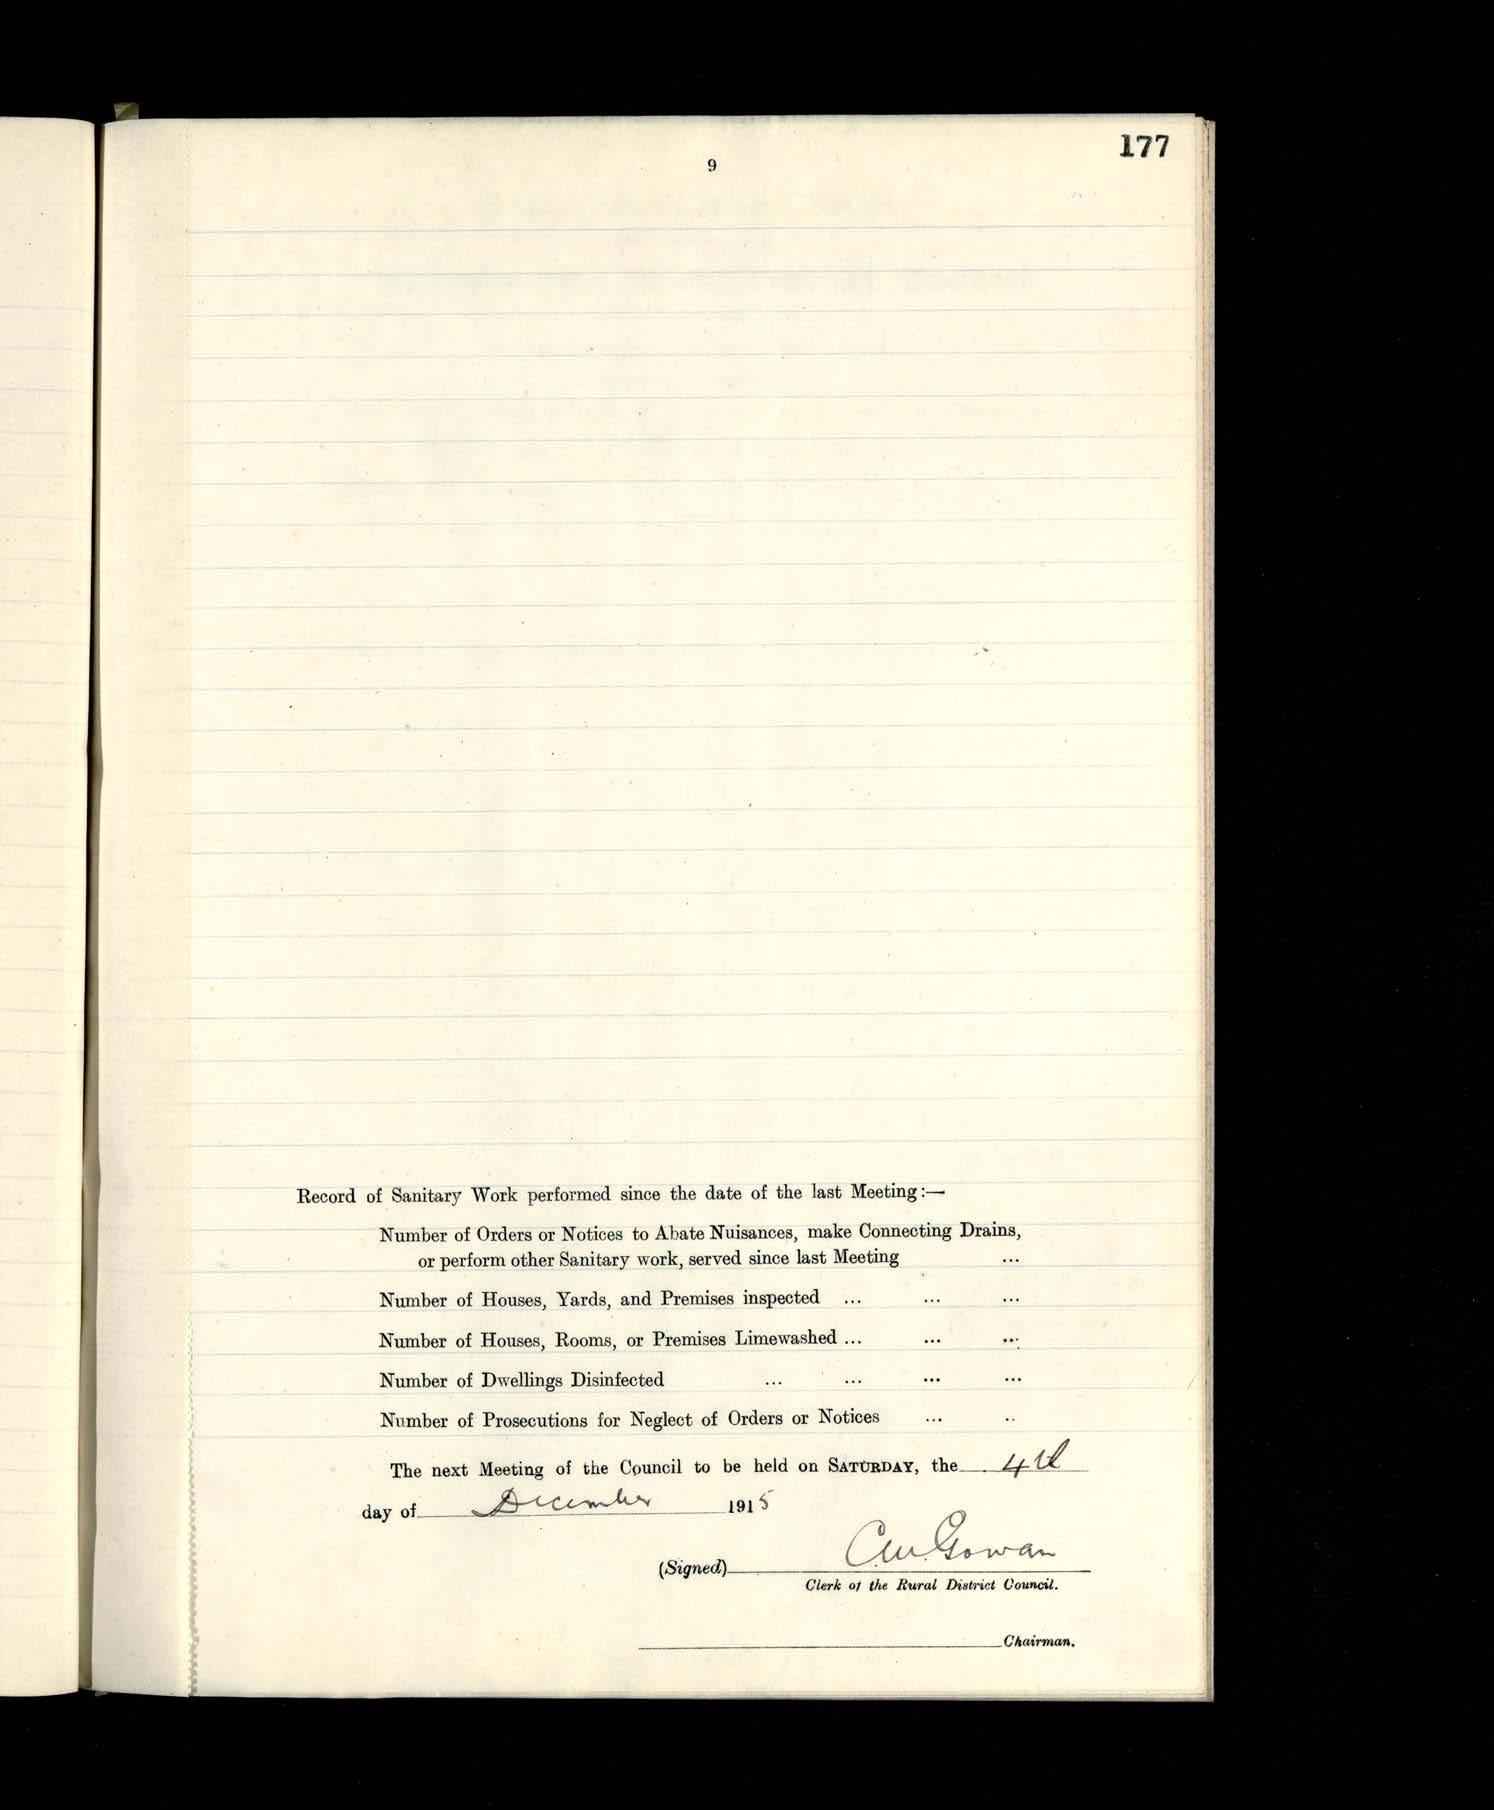 177
9
Record of Sanitary Work performed since the date of the last Meeting:—
Number of Orders or Notices to Abate Nuisances, make Connecting Drains,
or perform other Sanitary work, served since last Meeting ...
Number of Houses, Yards, and Premises inspected ... ... ...
Number of Houses, Rooms, or Premises Limewashed ... ... ...
Number of Dwellings Disinfected ... ... ... ...
Number of Prosecutions for Neglect of Orders or Notices ... ..
The next Meeting of the Council to be held on SATURDAY, the 4th
day of December 1915
(Signed) C.W. Gowan
Clerk of the Rural District Council.
Chairman.